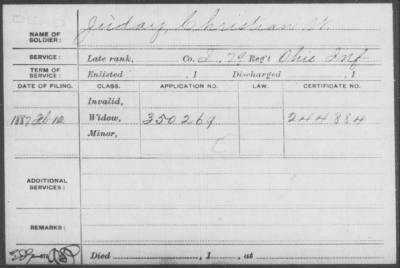 NAME OF SOLDIER: Judaiy, Christian W.
SERVICE: Late rank, Co. I, 79 Reg't Ohio Inf
TERM OF SERVICE: Enlisted , 1 Discharged , 1
DATE OF FILING. CLASS. APPLICATION NO. LAW. CERTIFICATE NO.
Invalid,
1887 Feb 12 Widow, 350269 244884
Minor,
ADDITIONAL SERVICES:
REMARKS:
Died , 1 , at